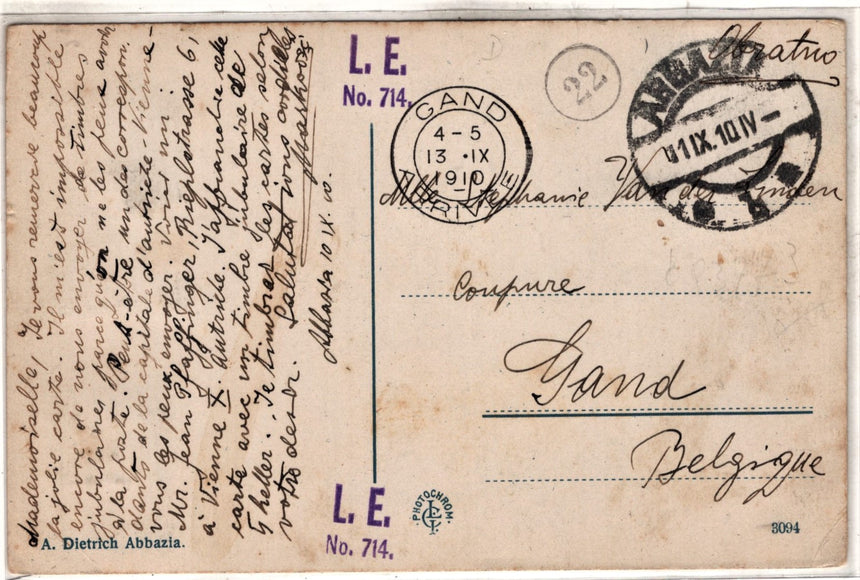 Mademoiselle, Je vous remercie beaucoup
la jolie carte. Il m'est impossible
encore de vous envoyer de timbres
jubulaires parce qu'on ne les peut avoir
à la poste. Peut-être un des correspon-
dants de la capitale d'autriche-Vienne-
vous les peux envoyer. Voici un:
Mr. Jean Pfaffinger, Rieplstrasse 6,
à Vienne X. Autriche. J'affranchie cette
carte avec un timbre jubulaire de
5 heller. Je timbrai les cartes selon
votre desir. Salutations cordiales
Abbazia 10 IX 10.
L. E.
No. 714.
22
GAND
4-5
13 IX
1910
ARRIVÉE
ABBAZIA
11 IX. 10 IV -
Mlle Stephanie Van der Linden
Coupure
Gand
Belgique
L. E.
No. 714.
PHOTOCHROM
A. Dietrich Abbazia.
3094